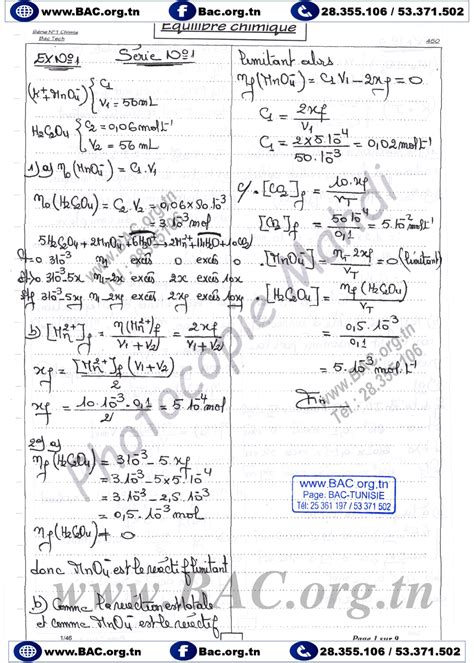 www.BAC.org.tn Bac.org.tn 28.355.106 / 53.371.502
Equilibre chimique
Série N°1 Chimie
Bac Tech
450
EX N°1 Série N°1
(K⁺, MnO₄⁻) { C₁
V₁ = 50 mL
H₂C₂O₄ { C₂ = 0,06 mol.L⁻¹
V₂ = 50 mL
1) a) n₀(MnO₄⁻) = C₁.V₁
n₀(H₂C₂O₄) = C₂.V₂ = 0,06 x 50.10⁻³
= 3.10⁻³ mol
5H₂C₂O₄ + 2MnO₄⁻ + 6H₃O⁺
t=0 3.10⁻³ n₁ excès 0 excès 0
3.10⁻³-5x n₁-2x excès 2x excès 10x
3.10⁻³-5xf n₁-2xf excès 2xf excès 10xf
b) [Mn²⁺]f = n(Mn²⁺)f / (V₁+V₂) = 2xf / (V₁+V₂)
xf = [Mn²⁺]f (V₁+V₂) / 2
xf = 10.10⁻³.0,1 / 2 = 5.10⁻⁴ mol
2°) a)
nf(H₂C₂O₄) = 3.10⁻³ - 5.xf
= 3.10⁻³ - 5x5.10⁻⁴
= 3.10⁻³ - 2,5.10⁻³
= 0,5.10⁻³ mol
nf(H₂C₂O₄) ≠ 0
donc MnO₄⁻ est le réactif limitant
b) Comme la réaction est totale
et comme MnO₄⁻ est le réactif
limitant alors
nf(MnO₄⁻) = C₁V₁ - 2xf = 0
C₁ = 2xf / V₁
C₁ = 2x5.10⁻⁴ / 50.10⁻³ = 0,02 mol.L⁻¹
c/ . [CO₂]f = 10.xf / VT
[CO₂]f = 50.10⁻⁴ / 0,1 = 5.10⁻² mol.L⁻¹
. [MnO₄⁻] = n₁-2xf / VT = 0 (limitant)
. [H₂C₂O₄] = nf(H₂C₂O₄) / VT
= 0,5.10⁻³ / 0,1
= 5.10⁻³ mol.L⁻¹
Fin
Photocopie Mahdi
www.BAC.org.tn
Tel : 28.355.106
www.BAC.org.tn
Page: BAC-TUNISIE
Tél: 25 361 197 / 53 371 502
www.BAC.org.tn
1/46
Page 1 sur 9
www.BAC.org.tn Bac.org.tn 28.355.106 / 53.371.502